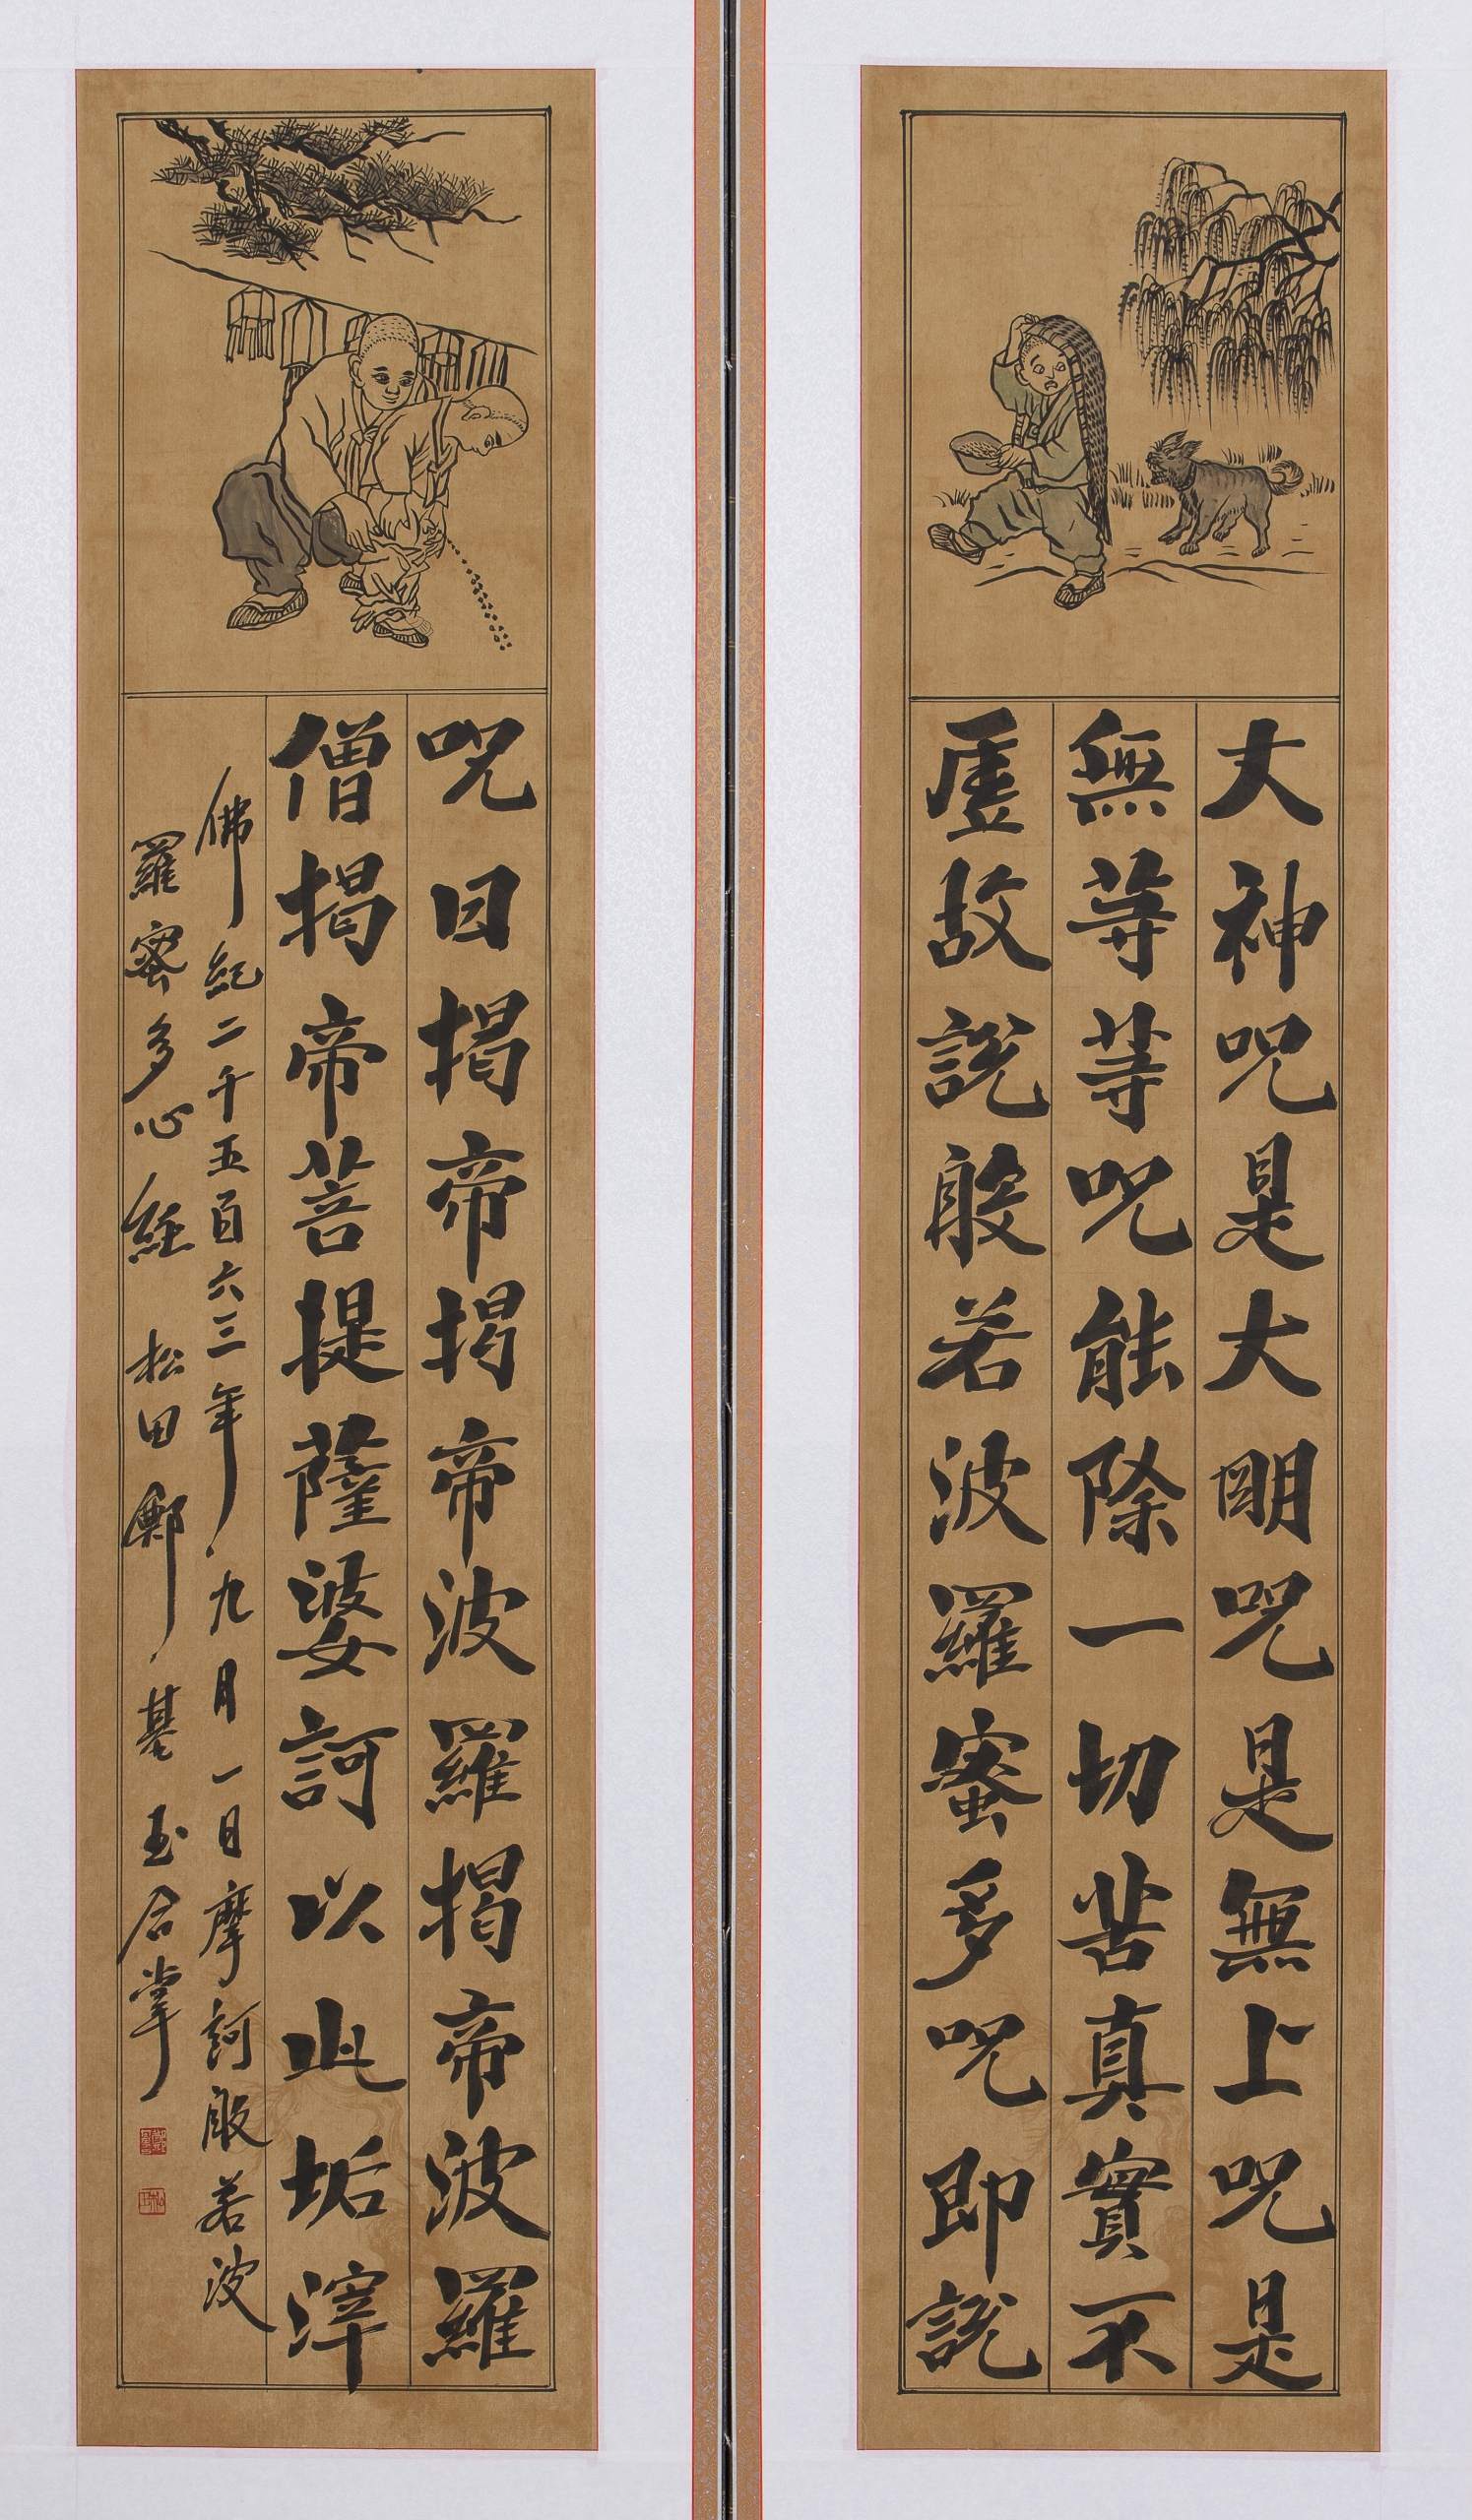 大神呪是大明呪是無上呪是
無等等呪能除一切苦真實不
虛故說般若波羅蜜多呪即說
呪曰揭帝揭帝波羅揭帝波羅
僧揭帝菩提薩婆訶以此垢滓
佛紀二千五百六三年九月一日摩訶般若波
羅蜜多心經 松田鄭基玉合掌